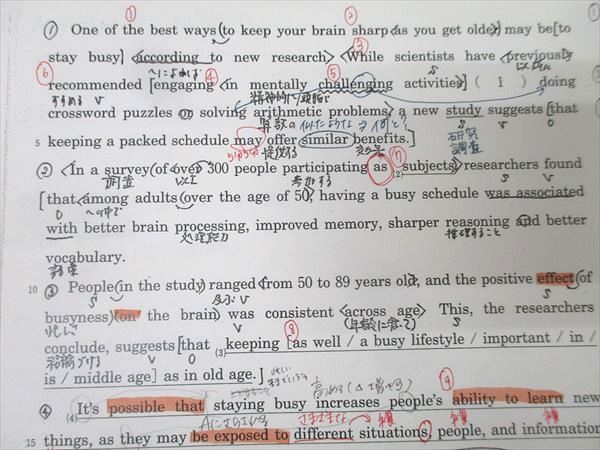 ① One of the best ways (to keep your brain sharp <as you get older>) may be [to
stay busy] <according to new research> <While scientists have <previously>
recommended [engaging <in mentally challenging activities>] ( 1 ) doing
精神的に
crossword puzzles or solving arithmetic problems>, a new study suggests [that
算数の
研究
調査
5 keeping a packed schedule may offer similar benefits.]
提供する
② <In a survey (of over 300 people participating as (2) subjects)> researchers found
調査
参加する
[that <among adults (over the age of 50)>, having a busy schedule was associated
with better brain processing, improved memory, sharper reasoning and better
処理能力
vocabulary.
10 ③ People (in the study) ranged <from 50 to 89 years old>, and the positive effect (of
及ぶ
busyness) (on the brain) was consistent <across age> This, the researchers
忙しさ
conclude, suggests [that (3) keeping [as well / a busy lifestyle / important / in /
結論づける
is / middle age] as in old age.]
④ (4) It's possible that staying busy increases people's ability to learn new
さまざまな
15 things, as they may be exposed to different situations, people, and information